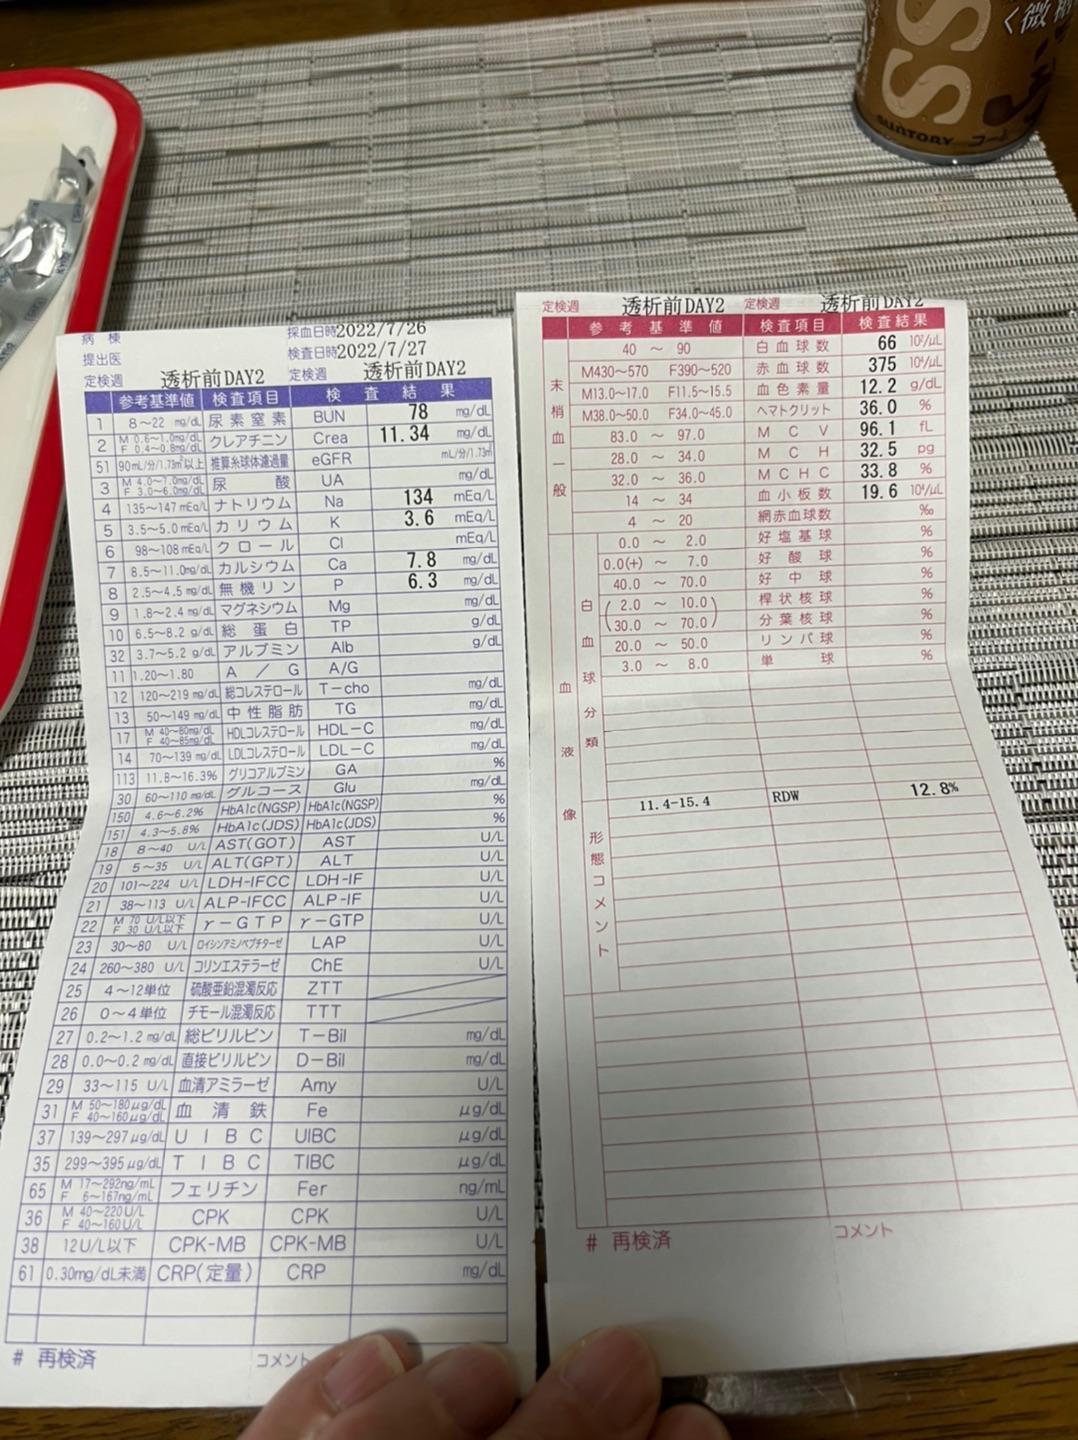 SS
く微
SUNTORY コー
病棟
採血日時2022/7/26
提出医
検査日時2022/7/27
定検週 透析前DAY2 定検週 透析前DAY2
参考基準値 検査項目 検査結果
1 8～22 mg/dL 尿素窒素 BUN 78 mg/dL
2 M 0.6～1.0mg/dL F 0.4～0.8mg/dL クレアチニン Crea 11.34 mg/dL
51 90mL/分/1.73㎡以上 推算糸球体濾過量 eGFR mL/分/1.73㎡
3 M 4.0～7.0mg/dL F 3.0～6.0mg/dL 尿酸 UA mg/dL
4 135～147 mEq/L ナトリウム Na 134 mEq/L
5 3.5～5.0 mEq/L カリウム K 3.6 mEq/L
6 98～108 mEq/L クロール Cl mEq/L
7 8.5～11.0mg/dL カルシウム Ca 7.8 mg/dL
8 2.5～4.5 mg/dL 無機リン P 6.3 mg/dL
9 1.8～2.4 mg/dL マグネシウム Mg mg/dL
10 6.5～8.2 g/dL 総蛋白 TP g/dL
32 3.7～5.2 g/dL アルブミン Alb g/dL
11 1.20～1.80 A／G A/G
12 120～219 mg/dL 総コレステロール T－cho mg/dL
13 50～149 mg/dL 中性脂肪 TG mg/dL
17 M 40～80mg/dL F 40～85mg/dL HDLコレステロール HDL－C mg/dL
14 70～139 mg/dL LDLコレステロール LDL－C mg/dL
113 11.8～16.3% グリコアルブミン GA %
30 60～110 mg/dL グルコース Glu mg/dL
150 4.6～6.2% HbA1c(NGSP) HbA1c(NGSP) %
151 4.3～5.8% HbA1c(JDS) HbA1c(JDS) %
18 8～40 U/L AST(GOT) AST U/L
19 5～35 U/L ALT(GPT) ALT U/L
20 101～224 U/L LDH-IFCC LDH-IF U/L
21 38～113 U/L ALP-IFCC ALP-IF U/L
22 M 70 U/L以下 F 30 U/L以下 γ－GTP γ－GTP U/L
23 30～80 U/L ロイシンアミノペプチターゼ LAP U/L
24 260～380 U/L コリンエステラーゼ ChE U/L
25 4～12単位 硫酸亜鉛混濁反応 ZTT
26 0～4単位 チモール混濁反応 TTT
27 0.2～1.2 mg/dL 総ビリルビン T－Bil mg/dL
28 0.0～0.2 mg/dL 直接ビリルビン D－Bil mg/dL
29 33～115 U/L 血清アミラーゼ Amy U/L
31 M 50～180μg/dL F 40～160μg/dL 血清鉄 Fe μg/dL
37 139～297μg/dL UIBC UIBC μg/dL
35 299～395μg/dL TIBC TIBC μg/dL
65 M 17～292ng/mL F 6～167ng/mL フェリチン Fer ng/mL
36 M 40～220U/L F 40～160U/L CPK CPK U/L
38 12U/L以下 CPK-MB CPK-MB U/L
61 0.30mg/dL未満 CRP(定量) CRP mg/dL
# 再検済 コメント
定検週 透析前DAY2 定検週 透析前DAY2
参考基準値 検査項目 検査結果
末梢血一般
40 ～ 90 白血球数 66 10²/μL
M430～570 F390～520 赤血球数 375 10⁴/μL
M13.0～17.0 F11.5～15.5 血色素量 12.2 g/dL
M38.0～50.0 F34.0～45.0 ヘマトクリット 36.0 %
83.0 ～ 97.0 MCV 96.1 fL
28.0 ～ 34.0 MCH 32.5 pg
32.0 ～ 36.0 MCHC 33.8 %
14 ～ 34 血小板数 19.6 10⁴/μL
4 ～ 20 網赤血球数 ‰
血液像
白血球分類
0.0 ～ 2.0 好塩基球 %
0.0(+) ～ 7.0 好酸球 %
40.0 ～ 70.0 好中球 %
(2.0 ～ 10.0) 桿状核球 %
(30.0 ～ 70.0) 分葉核球 %
20.0 ～ 50.0 リンパ球 %
3.0 ～ 8.0 単球 %
11.4-15.4 RDW 12.8%
形態コメント
# 再検済 コメント